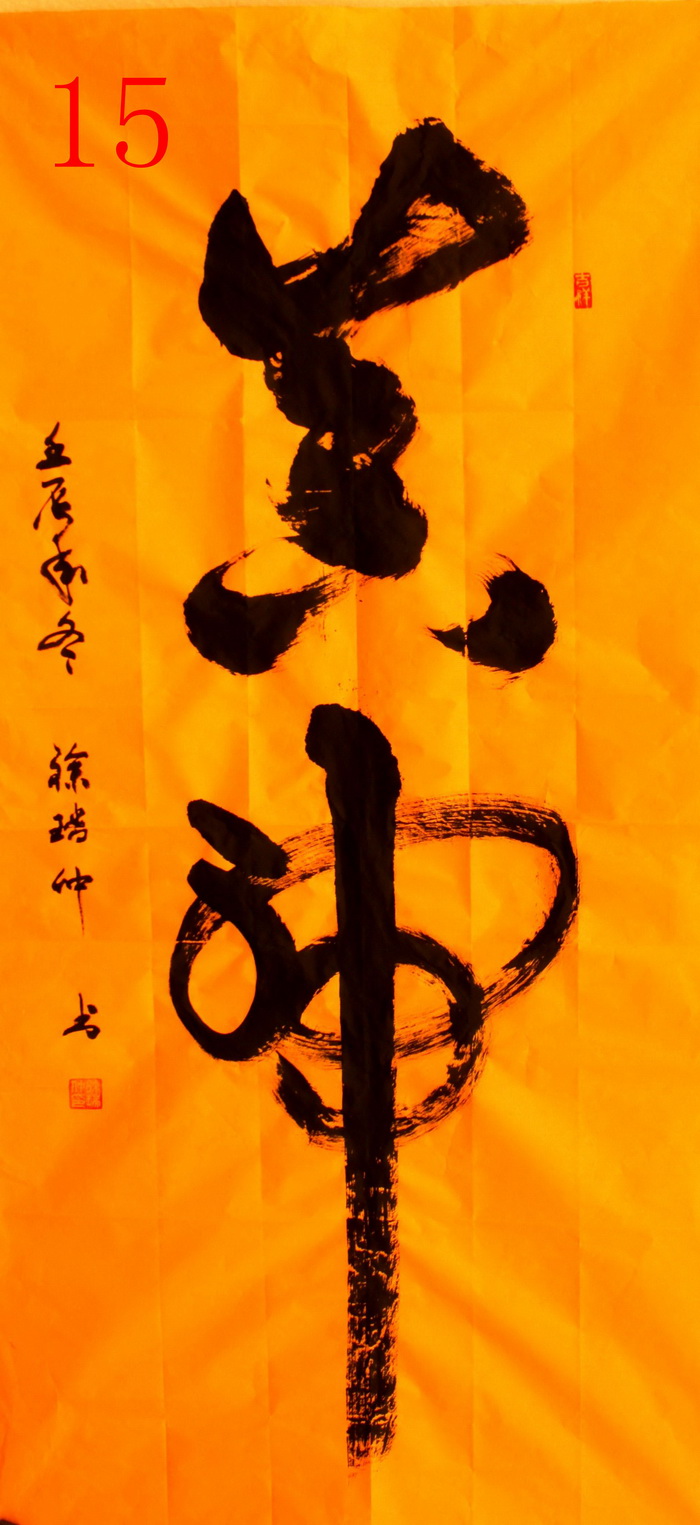 15
吉祥
神
壬辰冬 徐瑞仲 书